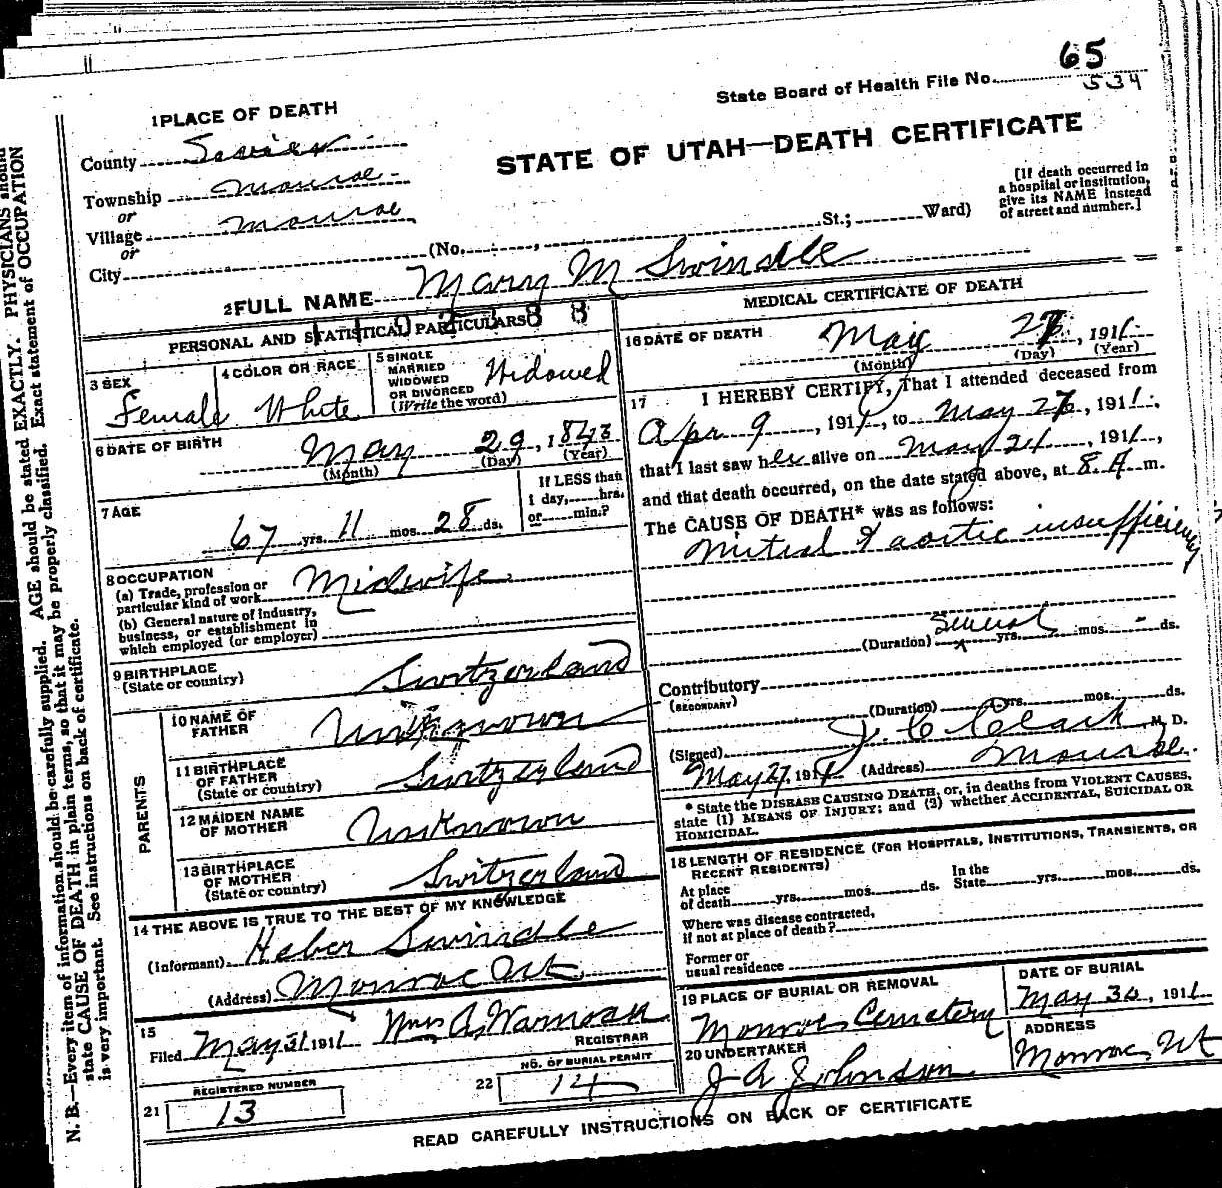 65
State Board of Health File No. 534
1 PLACE OF DEATH
STATE OF UTAH—DEATH CERTIFICATE
County Sevier
Township Monroe
or
Village Monroe
or
City (No. , St.; Ward)
[If death occurred in
a hospital or institution,
give its NAME instead
of street and number.]
2 FULL NAME Mary M Swindle
PERSONAL AND STATISTICAL PARTICULARS
3 SEX
Female
4 COLOR OR RACE
White
5 SINGLE
MARRIED
WIDOWED
OR DIVORCED
(Write the word)
Widowed
6 DATE OF BIRTH
May 29, 1843
(Month) (Day) (Year)
7 AGE
67 yrs. 11 mos. 28 ds.
If LESS than
1 day, hrs.
or min.?
8 OCCUPATION
(a) Trade, profession or
particular kind of work Midwife
(b) General nature of industry,
business, or establishment in
which employed (or employer)
9 BIRTHPLACE
(State or country) Switzerland
PARENTS
10 NAME OF
FATHER Unknown
11 BIRTHPLACE
OF FATHER
(State or country) Switzerland
12 MAIDEN NAME
OF MOTHER Unknown
13 BIRTHPLACE
OF MOTHER
(State or country) Switzerland
14 THE ABOVE IS TRUE TO THE BEST OF MY KNOWLEDGE
(Informant) Heber Swindle
(Address) Monroe Ut
15
Filed May 31 1911
REGISTRAR
REGISTERED NUMBER
21 13
NO. OF BURIAL PERMIT
22 14
MEDICAL CERTIFICATE OF DEATH
16 DATE OF DEATH
May 27, 1911
(Month) (Day) (Year)
17 I HEREBY CERTIFY, That I attended deceased from
Apr 9, 1911, to May 27, 1911,
that I last saw her alive on May 21, 1911,
and that death occurred, on the date stated above, at 8 A m.
The CAUSE OF DEATH* was as follows:
Mitral & aortic insufficiency
(Duration) Several yrs. mos. - ds.
Contributory
(SECONDARY)
(Duration) yrs. mos. ds.
(Signed) J. C. Clark M. D.
May 27, 1911 (Address) Monroe
* State the DISEASE CAUSING DEATH, or, in deaths from VIOLENT CAUSES,
state (1) MEANS OF INJURY; and (2) whether ACCIDENTAL, SUICIDAL OR
HOMICIDAL.
18 LENGTH OF RESIDENCE (FOR HOSPITALS, INSTITUTIONS, TRANSIENTS, OR
RECENT RESIDENTS)
At place
of death yrs. mos. ds. In the
State yrs. mos. ds.
Where was disease contracted,
if not at place of death?
Former or
usual residence
19 PLACE OF BURIAL OR REMOVAL
Monroe Cemetery
DATE OF BURIAL
May 30, 1911
20 UNDERTAKER
J A Johnson
ADDRESS
Monroe, Ut
READ CAREFULLY INSTRUCTIONS ON BACK OF CERTIFICATE
N. B.—Every item of information should be carefully supplied. AGE should be stated EXACTLY. PHYSICIANS should
state CAUSE OF DEATH in plain terms, so that it may be properly classified. Exact statement of OCCUPATION
is very important. See instructions on back of certificate.